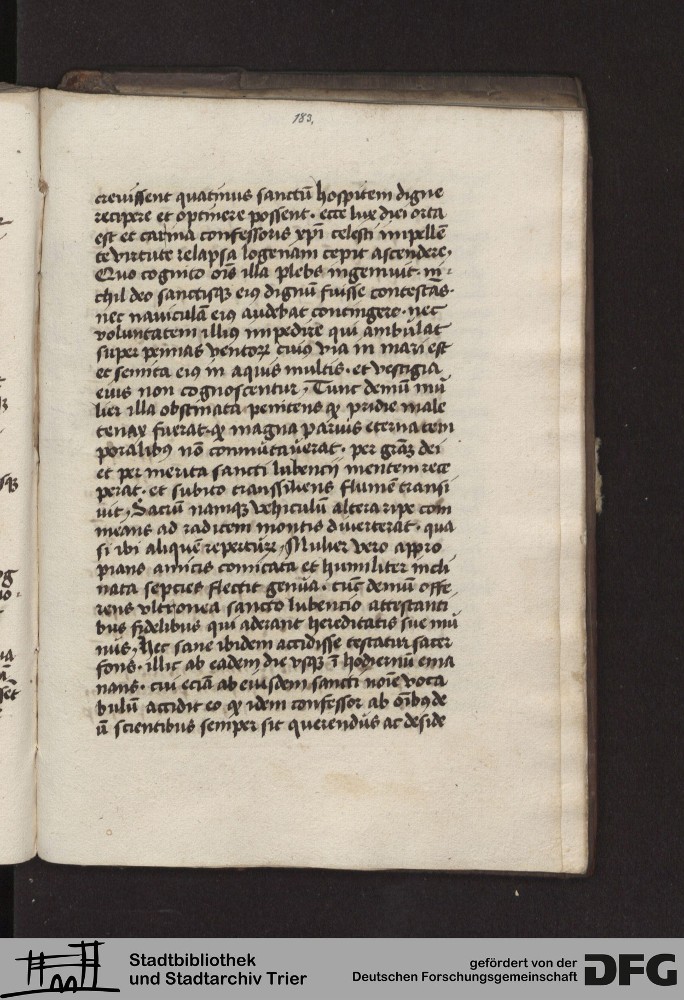 183.
creuissent quatinus sanctū hospitem digne
recipere et optinere possent · ecce lux diei orta
est et carina confessoris xp̄i celesti impellē
te virtute relapsa logenam cepit ascendere,
Quo cognito oīs illa plebs ingemuit · ni
chil deo sanctisqꝫ eiꝯ dignū fuisse contestās ·
nec nauiculā eiꝯ audebat contingere · nec
voluntatem illiꝯ impedire qui ambulat
super pennas ventoꝝ cuiꝯ via in mari est
et semita eiꝯ in aquis multis · et vestigia
eius non cognoscentur, Tunc demū mu
lier illa obstinata penitens ꝙ pridie male
tenax fuerat · ꝙ magna paruis eterna tem
poralibꝯ nō commutauerat · per grām dei
et per merita sancti lubencii mentem rece
perat · et subito transsiliens flumē transi
uit, Sacrū namqꝫ vehiculū altera ripe com
means ad radicem montis diuerterat · qua
si ibi aliquē reperture, Mulier vero appro
pians amicis comitata et humiliter incli
nata sepcies flectit genua · tūc demū offe
rens vltronea sancto lubencio attestanti
bus fidelibus qui aderant hereditatis sue mu
nus, Hec sane ibidem accidisse testatur sacer
fons · illic ab eadem die vsqꝫ ī hodiernū ema
nans · cui eciā ab eiusdem sancti noīe voca
bulū accidit eo ꝙ idem confessor ab oībꝯ de
ū scientibus semper sit querendus ac deside
Stadtbibliothek
und Stadtarchiv Trier
gefördert von der
Deutschen Forschungsgemeinschaft
DFG